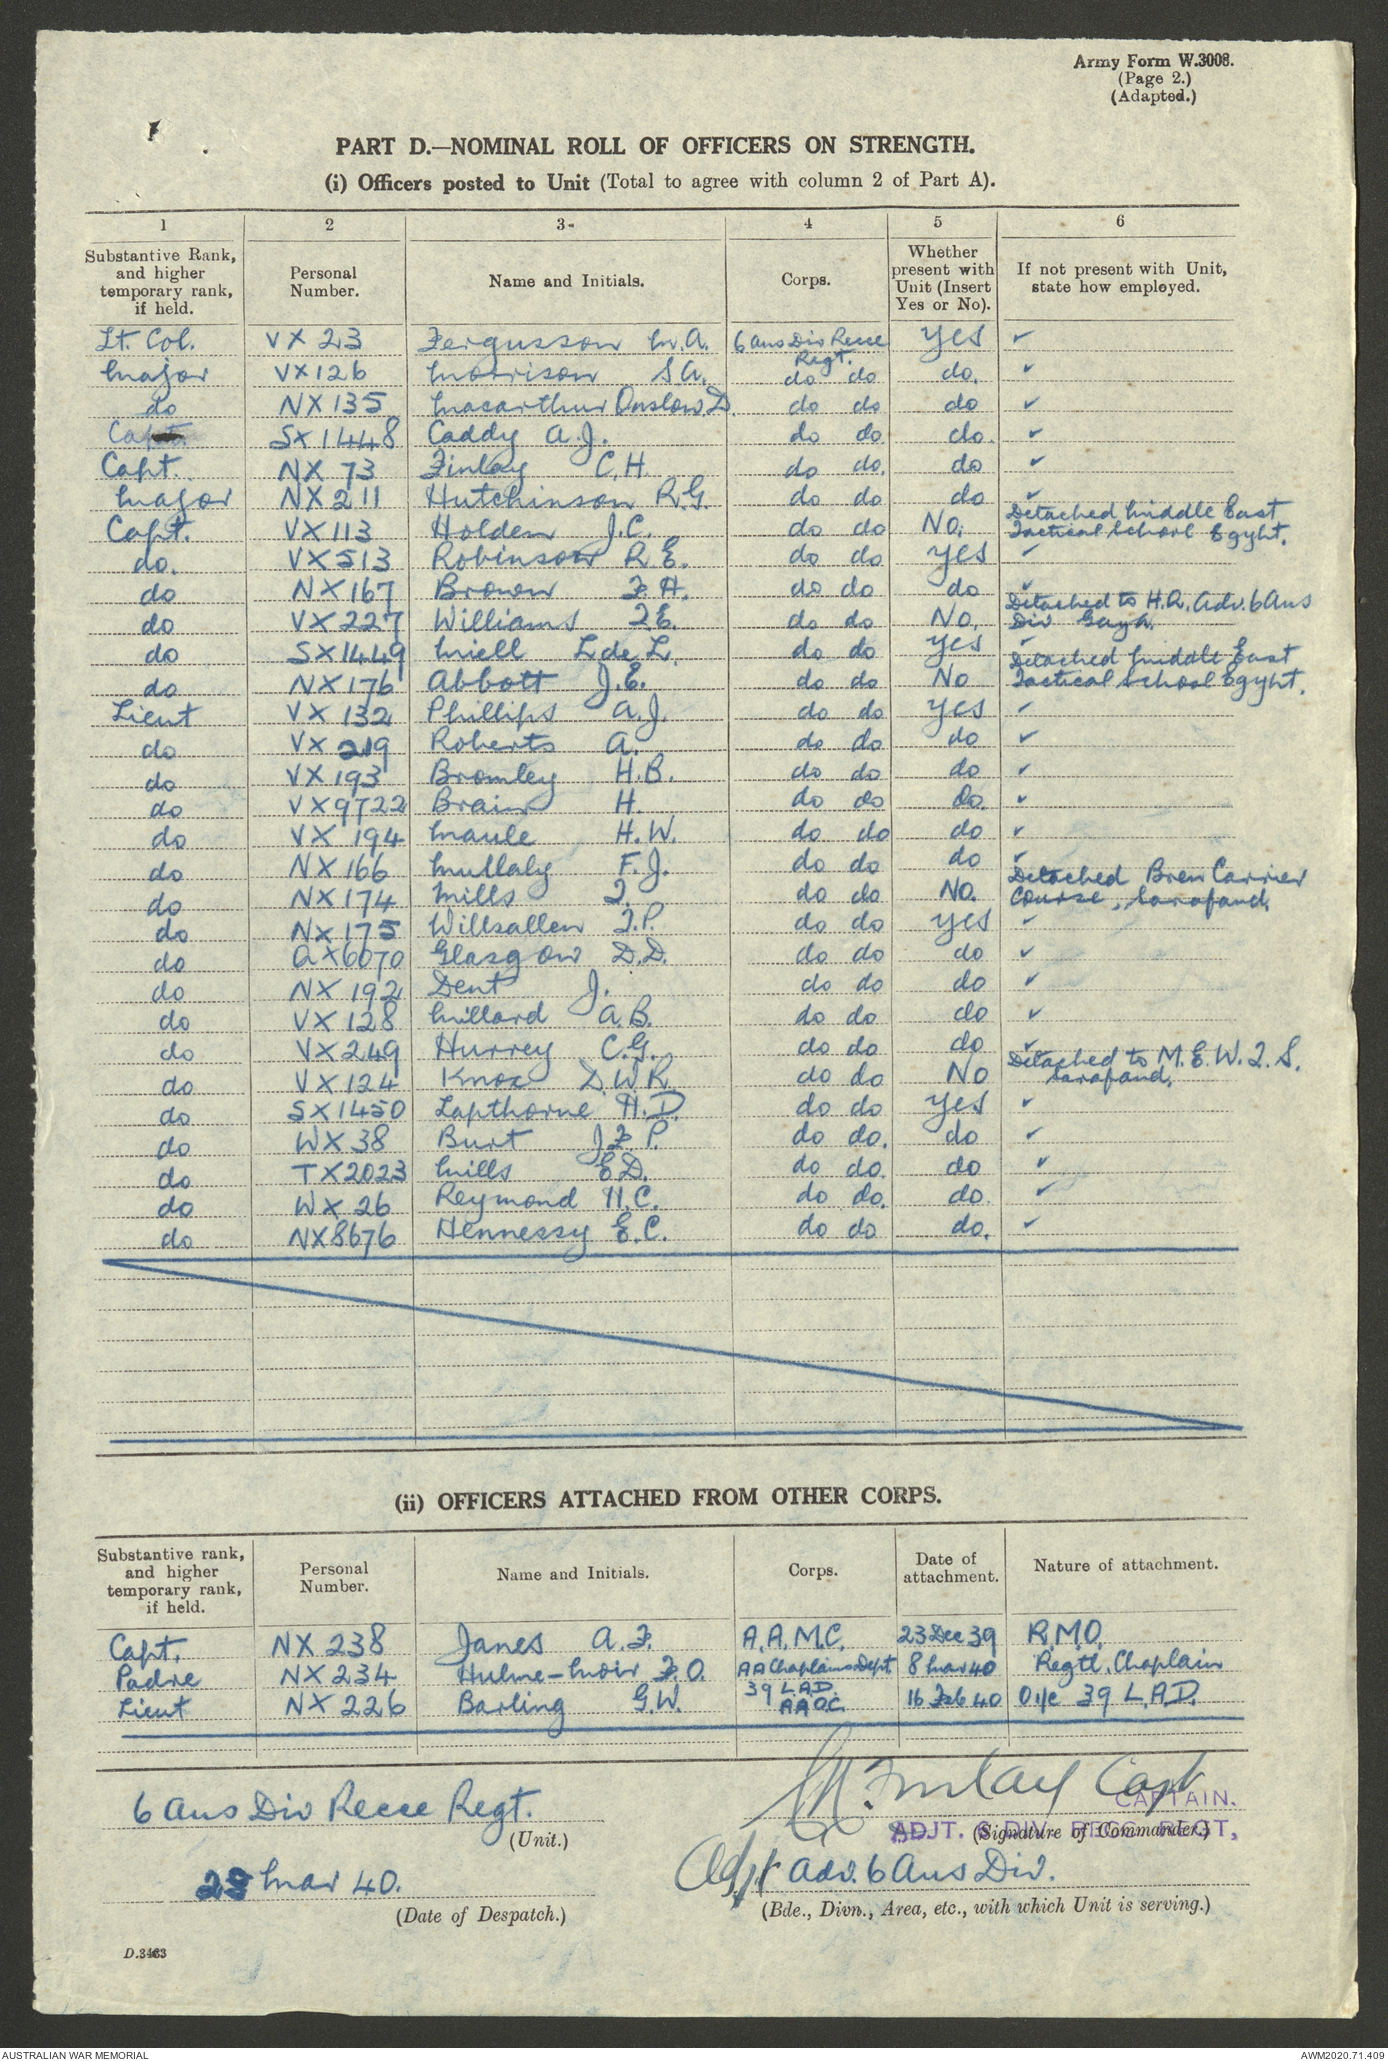 Army Form W.3008.
(Page 2.)
(Adapted.)
PART D.—NOMINAL ROLL OF OFFICERS ON STRENGTH.
(i) Officers posted to Unit (Total to agree with column 2 of Part A).
1 2 3- 4 5 6
Substantive Rank, and higher temporary rank, if held. Personal Number. Name and Initials. Corps. Whether present with Unit (Insert Yes or No). If not present with Unit, state how employed.
Lt. Col. VX 23 Fergusson M.A. 6 Aus Div Recce Regt. Yes ✓
Major VX126 Morrison S.A. do do do. ✓
do NX 135 Macarthur Onslow D. do do do ✓
Capt. SX1448 Caddy A.J. do do do. ✓
Capt. NX 73 Finlay C.H. do do. do ✓
Major NX 211 Hutchinson R.G. do do do ✓
Capt. VX113 Holden J.C. do do No. Detached Middle East Tactical School Egypt.
do. VX513 Robinson R.E. do do Yes ✓
do NX167 Brown F.H. do do do ✓
do VX227 Williams F.E. do do No. Detached to H.Q. Adv. 6 Aus Div Gaza.
do SX1449 Miell L de L. do do Yes ✓
do NX176 Abbott J.E. do do No Detached Middle East Tactical School Egypt.
Lieut VX 132 Phillips A.J. do do Yes ✓
do VX 219 Roberts A. do do do ✓
do VX 193 Bromley H.B. do do do ✓
do VX9722 Brain H. do do do. ✓
do VX 194 Maule H.W. do do do ✓
do NX 166 Mullaly F.J. do do do ✓
do NX 174 Mills T. do do No. Detached Bren Carrier Course, Sarafand.
do NX 175 Willsallen T.P. do do Yes ✓
do QX6070 Glasgow D.D. do do do ✓
do NX 192 Dent J. do do do ✓
do VX 128 Millard A.B. do do do ✓
do VX249 Hurrey C.G. do do do ✓
do VX 124 Knox D.W.R. do do No Detached to M.E.W.T.S. Sarafand.
do SX1450 Lapthorne H.D. do do Yes ✓
do WX 38 Burt J.F.P. do do. do ✓
do TX2023 Mills E.D. do do. do ✓
do WX 26 Reymond H.C. do do. do. ✓
do NX8676 Hennessy E.C. do do do. ✓
(ii) OFFICERS ATTACHED FROM OTHER CORPS.
Substantive rank, and higher temporary rank, if held. Personal Number. Name and Initials. Corps. Date of attachment. Nature of attachment.
Capt. NX 238 Janes A.F. A.A.M.C. 23 Dec 39 R.M.O.
Padre NX 234 Hulme-Moir F.O. AA Chaplains Dept 8 Mar 40 Regtl. Chaplain
Lieut NX 226 Barling G.W. 39 L.A.D. AAOC. 16 Feb 40 O i/c 39 L.A.D.
6 Aus Div Recce Regt. C H Finlay Capt
CAPTAIN.
(Unit.) ADJT. 6 DIV. RECC. REGT, (Signature of Commander.)
23 Mar 40. Adjt Adv. 6 Aus Div.
(Date of Despatch.) (Bde., Divn., Area, etc., with which Unit is serving.)
D.3463
AUSTRALIAN WAR MEMORIAL AWM2020.71.409